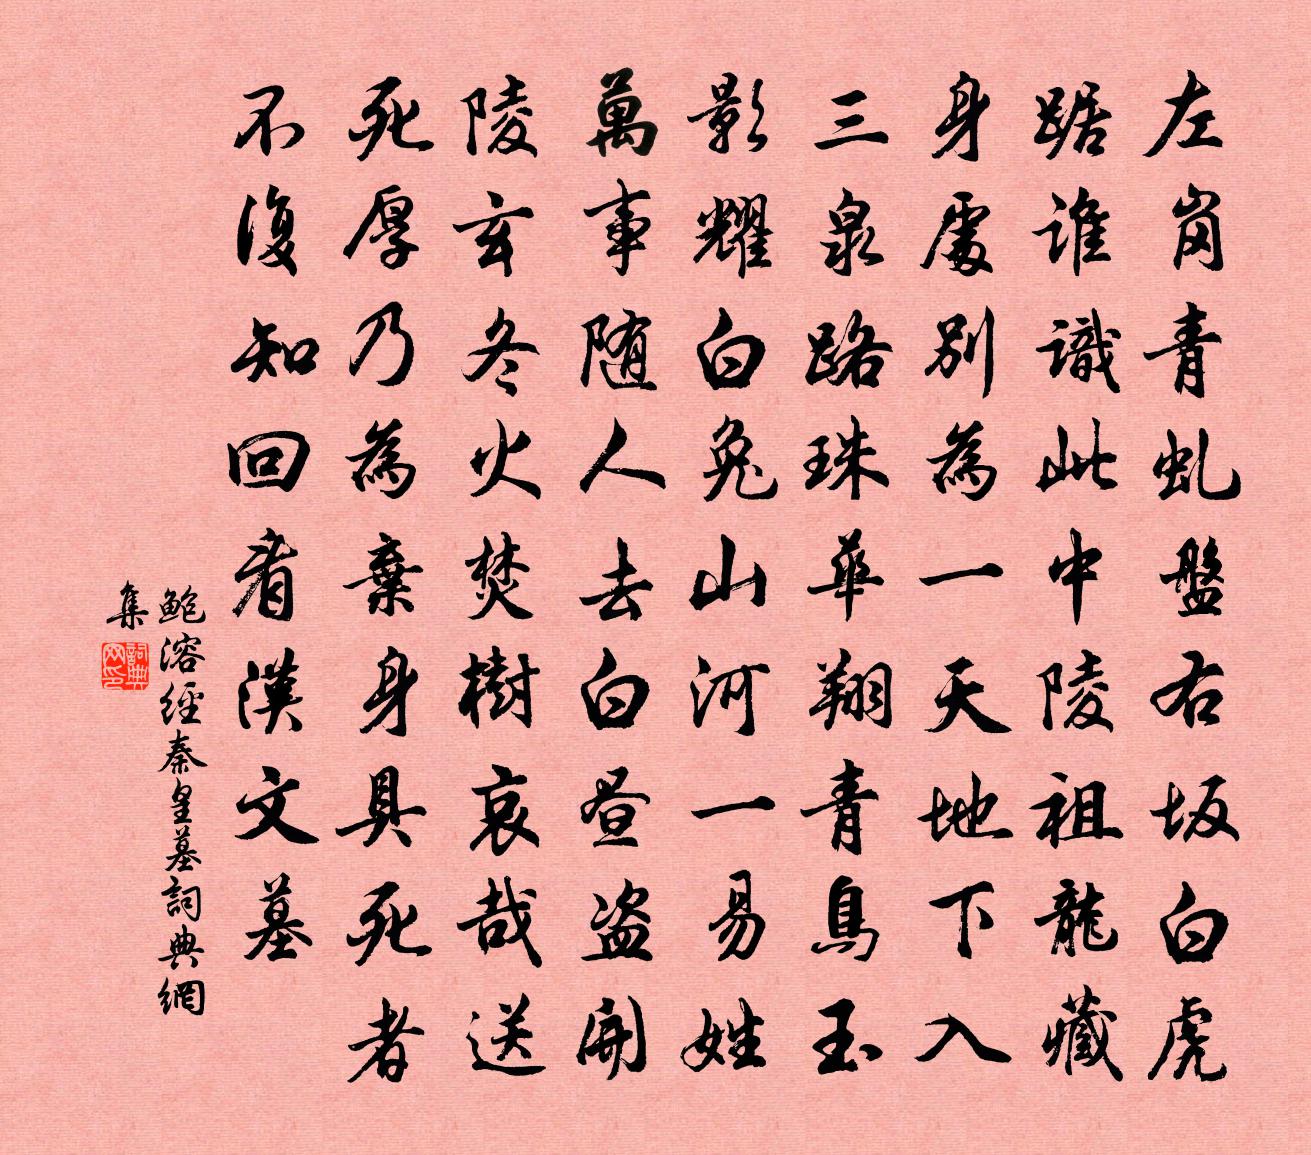 左崗青虬盤右坂白虎
踞誰識此中陵祖龍藏
身處別為一天地下入
三泉路珠華翔青鳥玉
影耀白兔山河一易姓
萬事隨人去白晝盜開
陵玄冬火焚樹哀哉送
死厚乃為棄身具死者
不復知回看漢文墓
鲍溶經秦皇墓詞典網
集
詞典網印